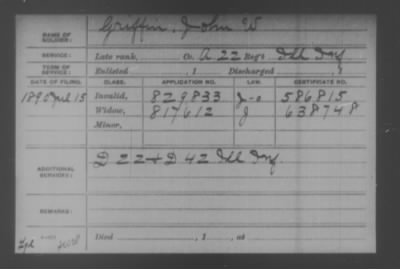 NAME OF SOLDIER: Griffin, John W
SERVICE: Late rank, Co. A 22 Reg't Ill Inf
TERM OF SERVICE: Enlisted , 1 Discharged , 1
DATE OF FILING. CLASS. APPLICATION NO. LAW. CERTIFICATE NO.
1890 Jul 15 Invalid, 829833 586815
Widow, 817612 J 638748
Minor,
ADDITIONAL SERVICES: D 22 + D 42 Ill Inf.
REMARKS:
Died , 1 , at